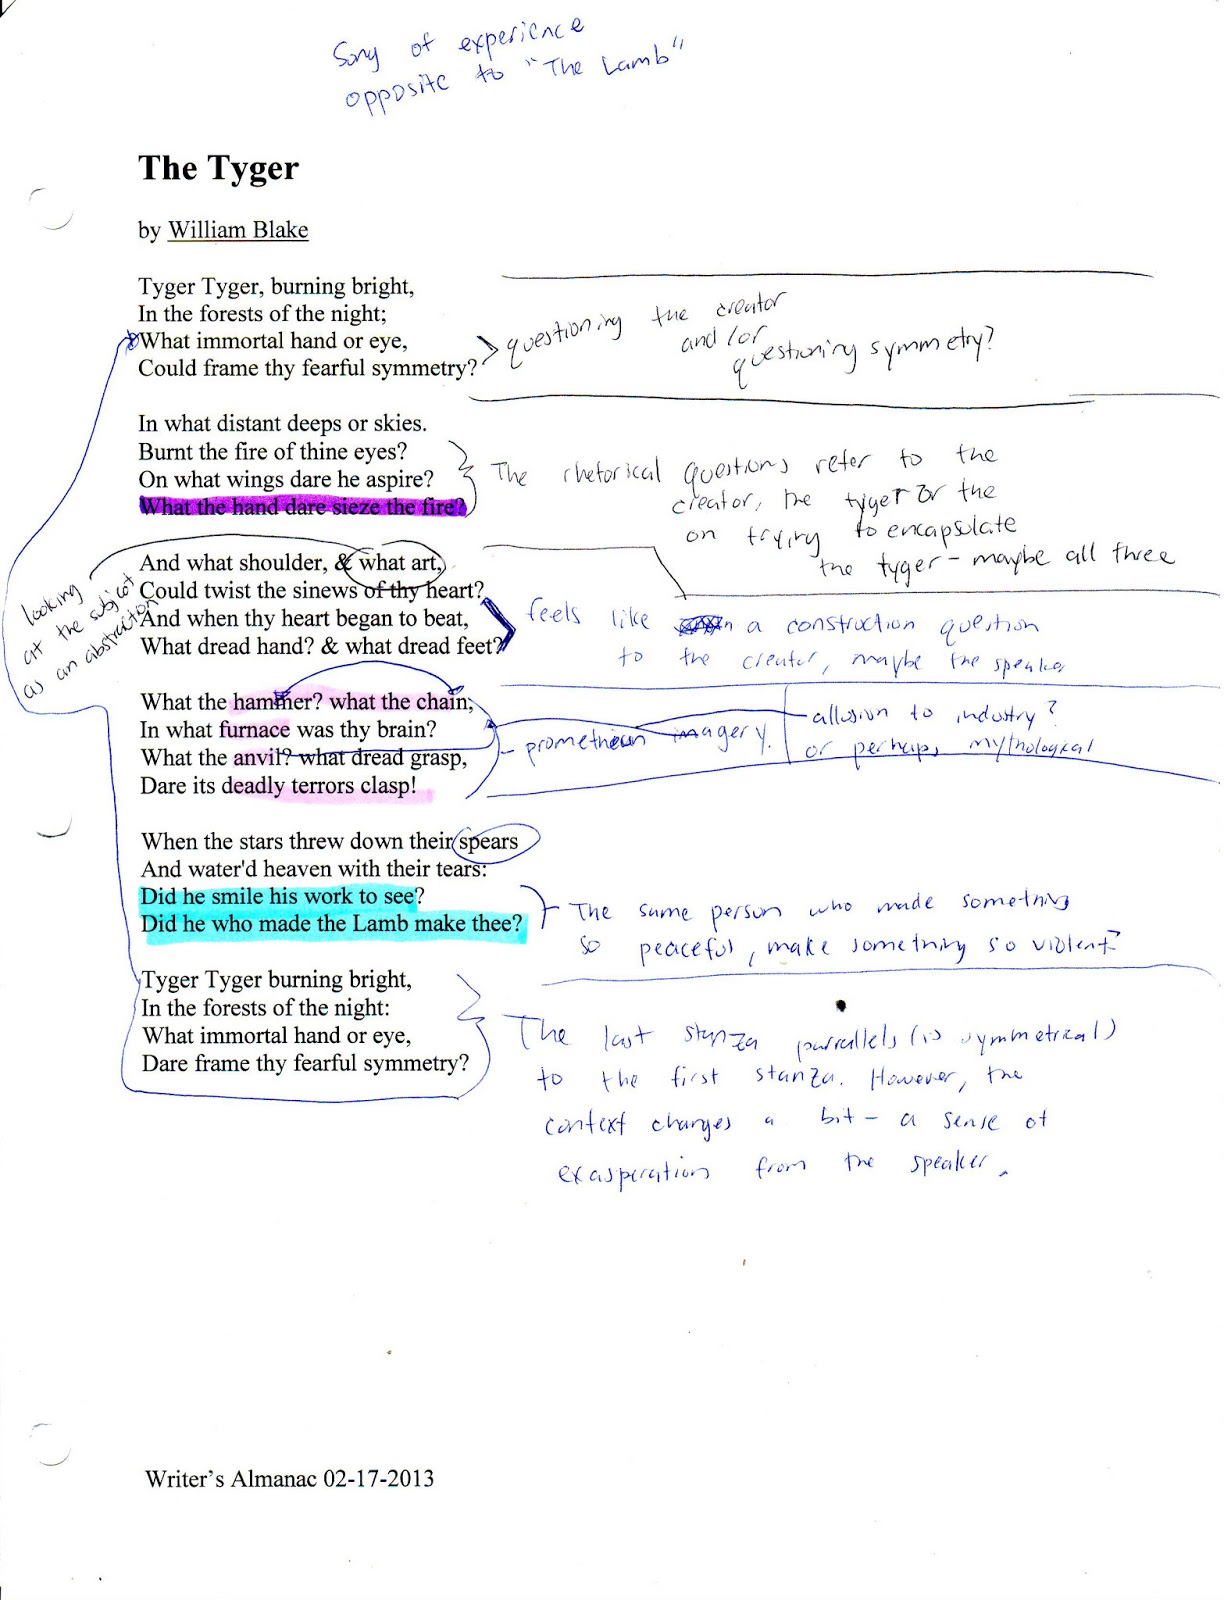 Song of experience
opposite to "The Lamb"
The Tyger
by William Blake
Tyger Tyger, burning bright,
In the forests of the night;
What immortal hand or eye,
Could frame thy fearful symmetry?
questioning the creator
and/or
questioning symmetry?
In what distant deeps or skies.
Burnt the fire of thine eyes?
On what wings dare he aspire?
What the hand dare sieze the fire?
The rhetorical questions refer to the
creator, the tyger or the
on trying to encapsulate
the tyger - maybe all three
And what shoulder, & what art,
Could twist the sinews of thy heart?
And when thy heart began to beat,
What dread hand? & what dread feet?
looking
at the subject
as an abstraction
feels like a construction question
to the creator, maybe the speaker
What the hammer? what the chain,
In what furnace was thy brain?
What the anvil? what dread grasp,
Dare its deadly terrors clasp!
promethean imagery.
allusion to industry?
or perhaps mythological
When the stars threw down their spears
And water'd heaven with their tears:
Did he smile his work to see?
Did he who made the Lamb make thee?
The same person who made something
so peaceful, make something so violent?
Tyger Tyger burning bright,
In the forests of the night:
What immortal hand or eye,
Dare frame thy fearful symmetry?
The last stanza parrallels (is symmetrical)
to the first stanza. However, the
context changes a bit - a sense of
exasperation from the speaker.
Writer's Almanac 02-17-2013